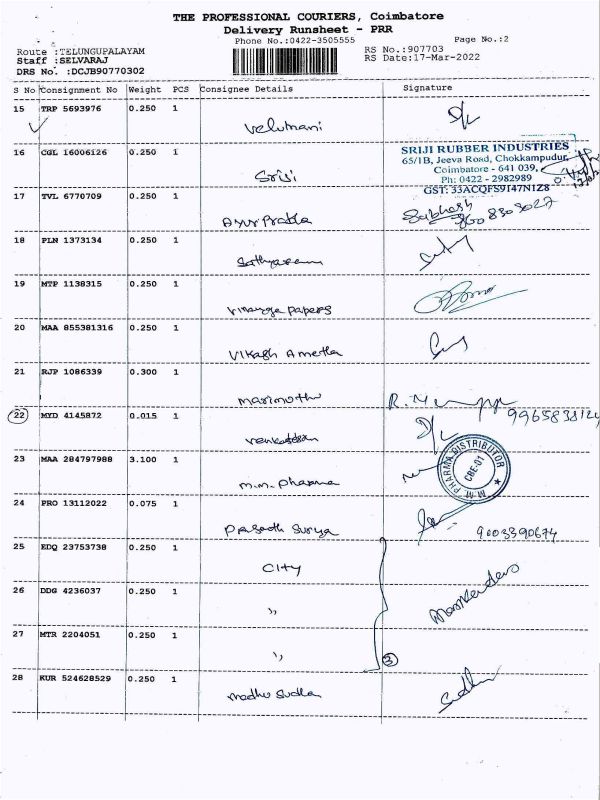 THE PROFESSIONAL COURIERS, Coimbatore
Delivery Runsheet - PRR
Phone No.:0422-3505555 Page No.:2
Route :TELUNGUPALAYAM RS No.:907703
Staff :SELVARAJ RS Date:17-Mar-2022
DRS No. :DCJB90770302
S No Consignment No Weight PCS Consignee Details Signature
15 TRP 5693976 0.250 1
Velumani D/L
16 CGL 16006126 0.250 1
Sriji
SRIJI RUBBER INDUSTRIES
65/1B, Jeeva Road, Chokkampudur,
Coimbatore - 641 039,
Ph: 0422 - 2982989
GST: 33ACQFS9147N1Z8
17 TVL 6770709 0.250 1
Subhash
8008308027
18 PLN 1373134 0.250 1
Sathyaram
19 MTP 1138315 0.250 1
Vinayga papers
20 MAA 855381316 0.250 1
Vikash Ametha
21 RJP 1086339 0.300 1
Marimuthu
22 MYD 4145872 0.015 1
9965838124
D/L
23 MAA 284797988 3.100 1
M.M. Pharma
M M PHARMA DISTRIBUTOR
CBE-01
24 PRO 13112022 0.075 1
Prasath Surya 9003390674
25 EDQ 23753738 0.250 1
City
26 DDG 4236037 0.250 1
,,
27 MTR 2204051 0.250 1
,, 3
28 KUR 524628529 0.250 1
Madhu Sudha